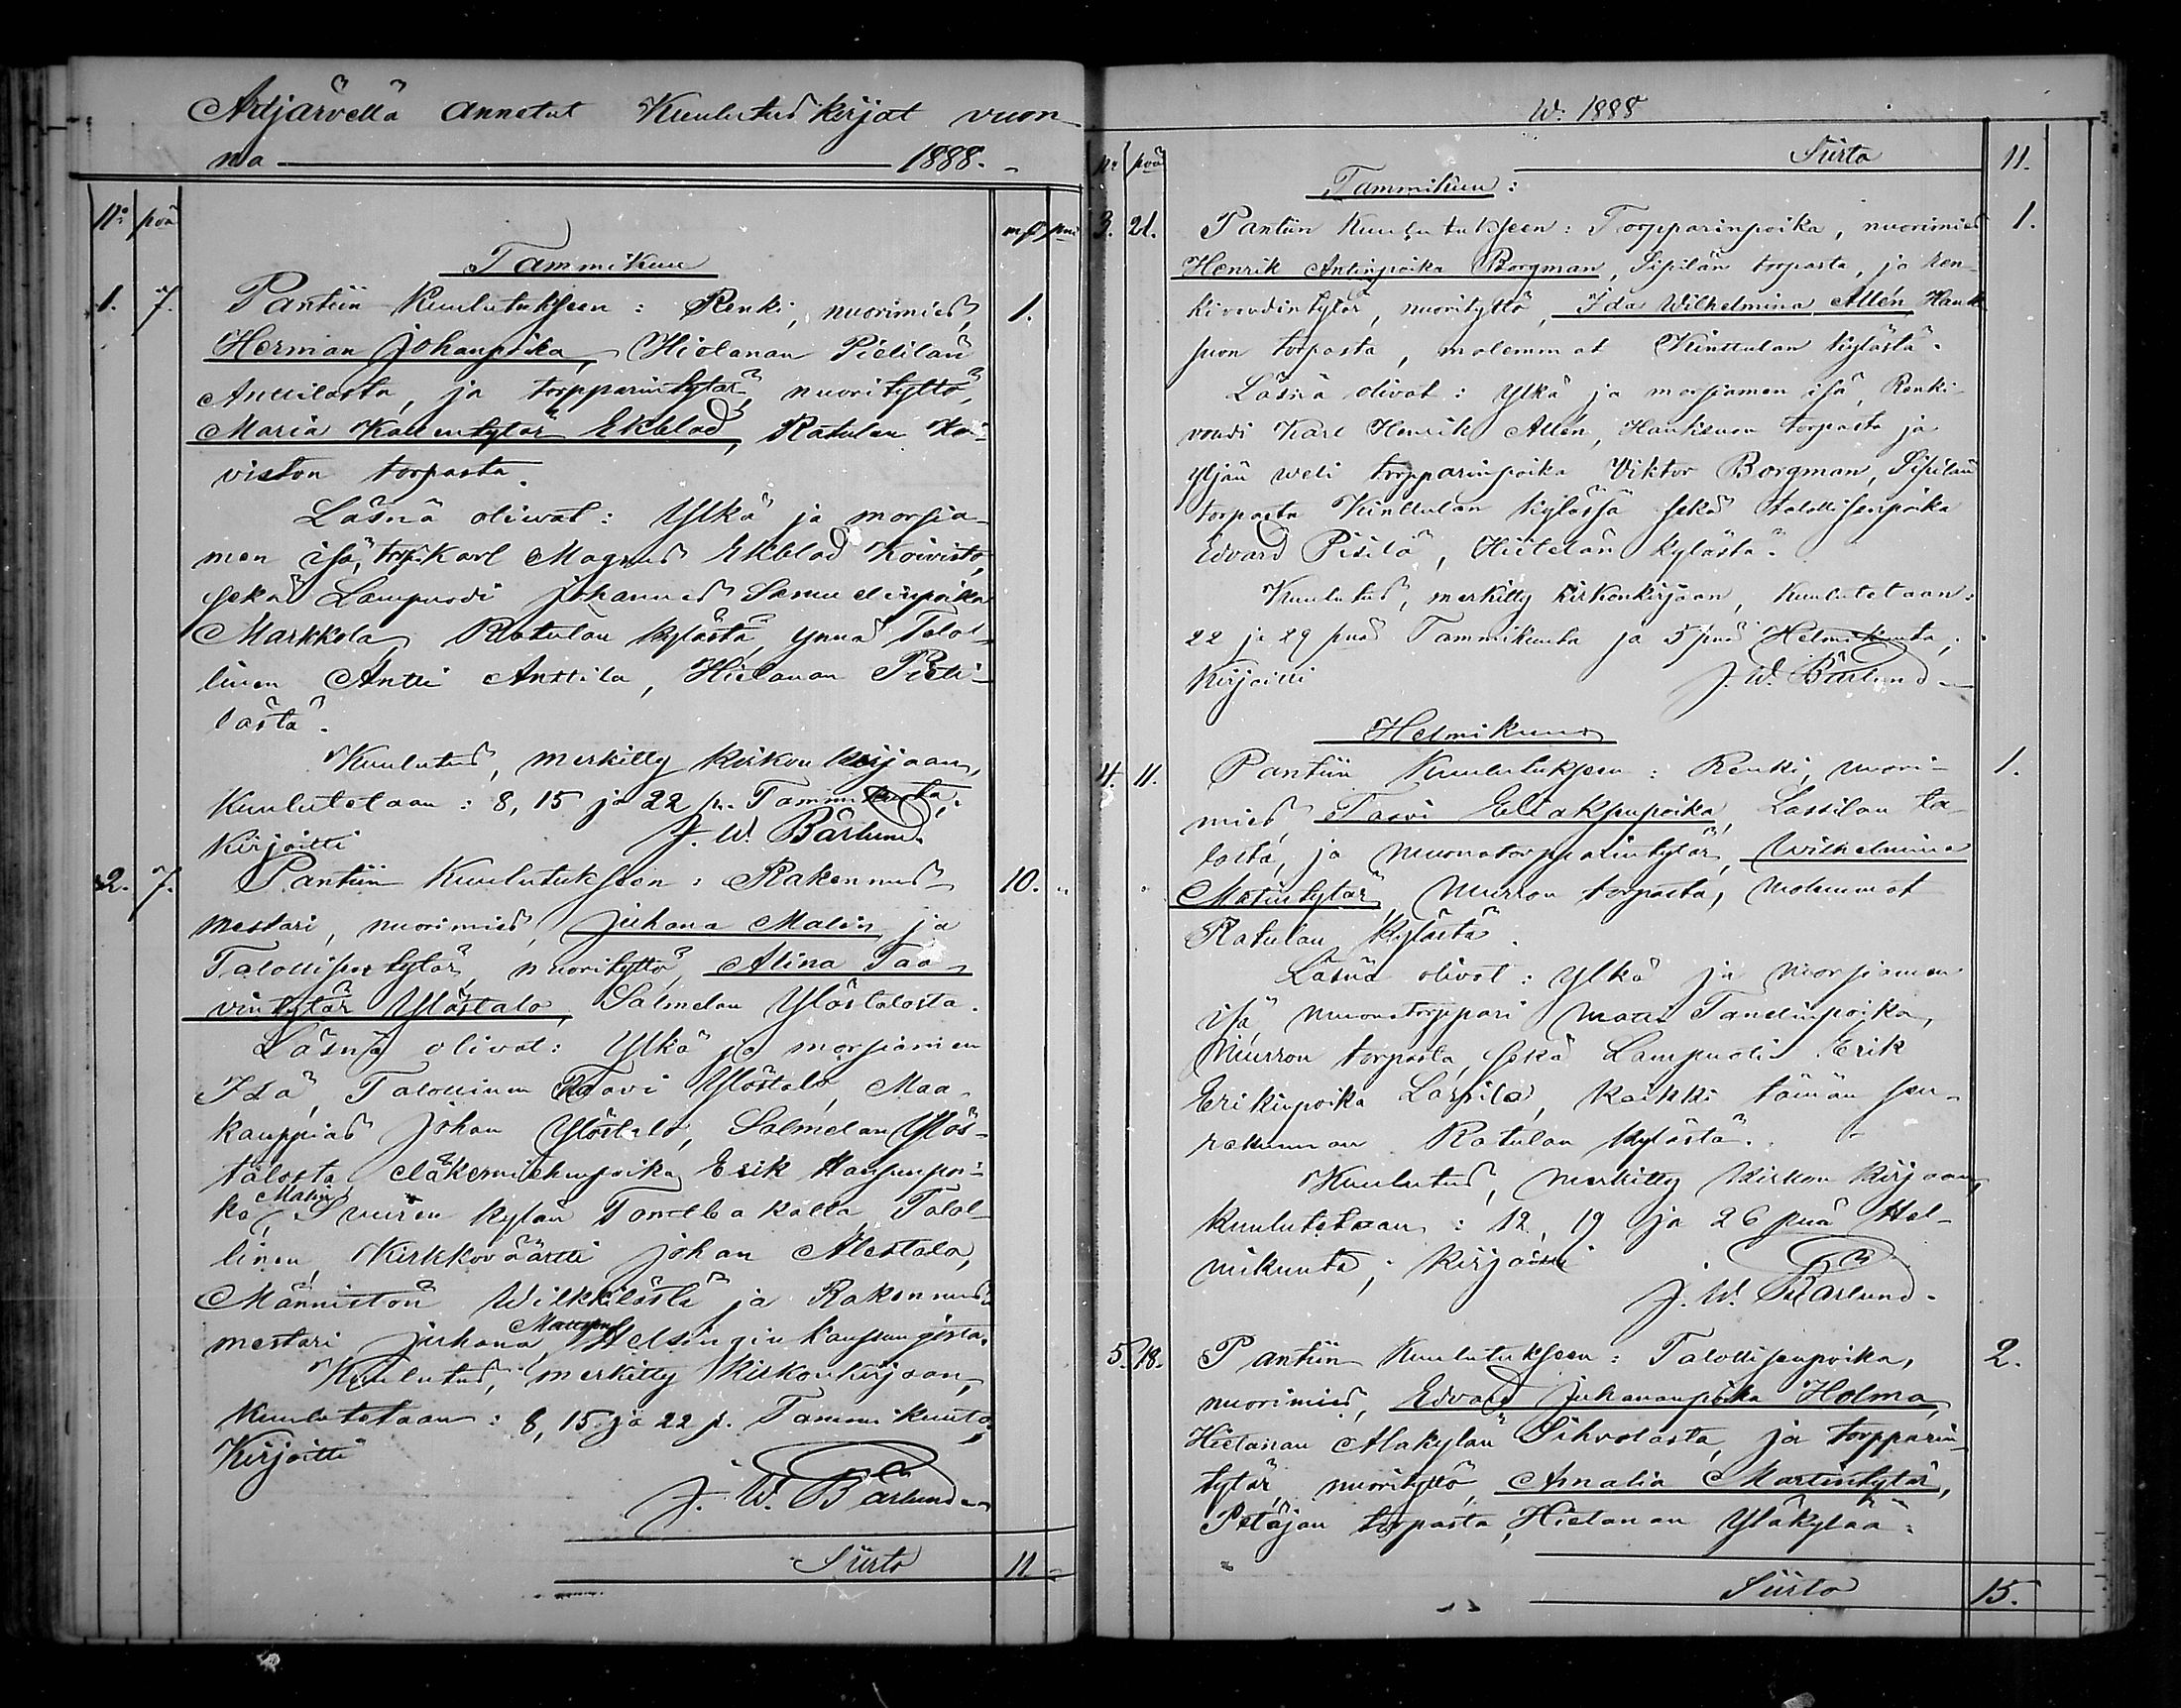 Artjärvellä annetut Kuulutuskirjat vuon-
na 1888.
No pvä
mk pni
Tammikuu
1. 7. Pantiin Kuulutukseen: Renki, nuorimies, 1.
Herman Johanpoika, Hietanan Pietilän
Anttilasta, ja torpparintytär, nuorityttö,
Maria Kallentytär Ekblad, Ratulan Koi-
viston torpasta.
Läsnä oliwat: Ylkä ja morsia-
men isä, torp. Karl Magnus Ekblad Koivisto,
sekä Lampuodi Johannes Samuelinpoika
Markkola, Ratulan kylästä, ynnä Talol-
linen Antti Anttila, Hietanan Pieti-
lästä.
Kuulutus, merkitty kirkon kirjaan,
Kuulutetaan: 8, 15 ja 22 p. Tammikuuta.
Kirjoitti J. W. Bärlund.
2. 7. Pantiin Kuulutukseen: Rakennus- 10. "
mestari, nuorimies, Juhana Malin ja
Talollisentytär, nuorityttö, Alina Taa-
vintytär Ylöstalo, Salmelan Ylöstalosta.
Läsnä olivat: Ylkä ja morsiamen
Isä, Talollinen Taavi Ylöstalo, Maa-
kauppias Johan Ylöstalo, Salmelan Ylös-
talosta, eläkemiehenpoika Erik Hansinpoi-
Malin
ka, Suuren kylän Tontbackalta, Talol-
linen, Kirkkoväärtti Johan Alestalo,
Männistön Wilkkilästä ja Rakennus-
mestari Juhana Helsingin kaupungista.
Kuulutus, merkitty Kirkonkirjaan,
Kuulutetaan: 8, 15 ja 22 p. Tammikuuta,
Kirjoitti
J. W. Bärlund
Siirto 11. "
W. 1888
Siirto 11.
No pvä
Tammikuu:
3. 21. Pantiin Kuulutukseen: Torpparinpoika, nuorimies 1.
Henrik Antinpoika Borgman, Sipilän torpasta, ja ren-
kivoudintytär, nuorityttö, Ida Wilhelmina Allén Hauki-
suon torpasta, molemmat Kinttulan kylästä.
Läsnä olivat: Ylkä ja morsiamen isä, Renki-
voudi Karl Henrik Allén, Haukisuon torpasta ja
yljän weli torpparinpoika Viktor Borgman, Sipilän
torpasta Kinttulan kylässä sekä talollisenpoika
Edvard Pisilä, Hietelän kylästä.
Kuulutus, merkitty kirkonkirjaan, kuulutetaan:
22 ja 29 pnä Tammikuuta ja 5 pnä Helmikuuta;
Kirjoitti J. W. Bärlund
Helmikuu
4. 11. Pantiin Kuulutukseen: Renki, nuori- 1.
mies Taavi Eliaksenpoika, Lassilan ta-
losta, ja muonatorpparintytär, Wilhelmina
Matintytär, Murron torpasta, molemmat
Ratulan kylästä.
Läsnä olivat: Ylkä ja Morsiamen
isä, muonatorppari Matti Tanelinpoika,
Murron torpasta, sekä Lampuoti Erik
Erikinpoika Lassila, kaikki tämän seu-
rakunnan Ratulan kylästä.
Kuulutus, merkitty Kirkon kirjaan,
kuulutetaan: 12, 19 ja 26 pnä Hel-
mikuuta; Kirjoitti
J. W. Bärlund.
5. 18. Pantiin Kuulutukseen: Talollisenpoika, 2.
nuorimies, Edvard Juhananpoika Holma,
Hietanan Alakylän Sihvolasta, ja torpparin-
tytär, nuorityttö, Amalia Martintytär,
Petäjän torpasta, Hietanan Yläkylää.
Siirto 15.